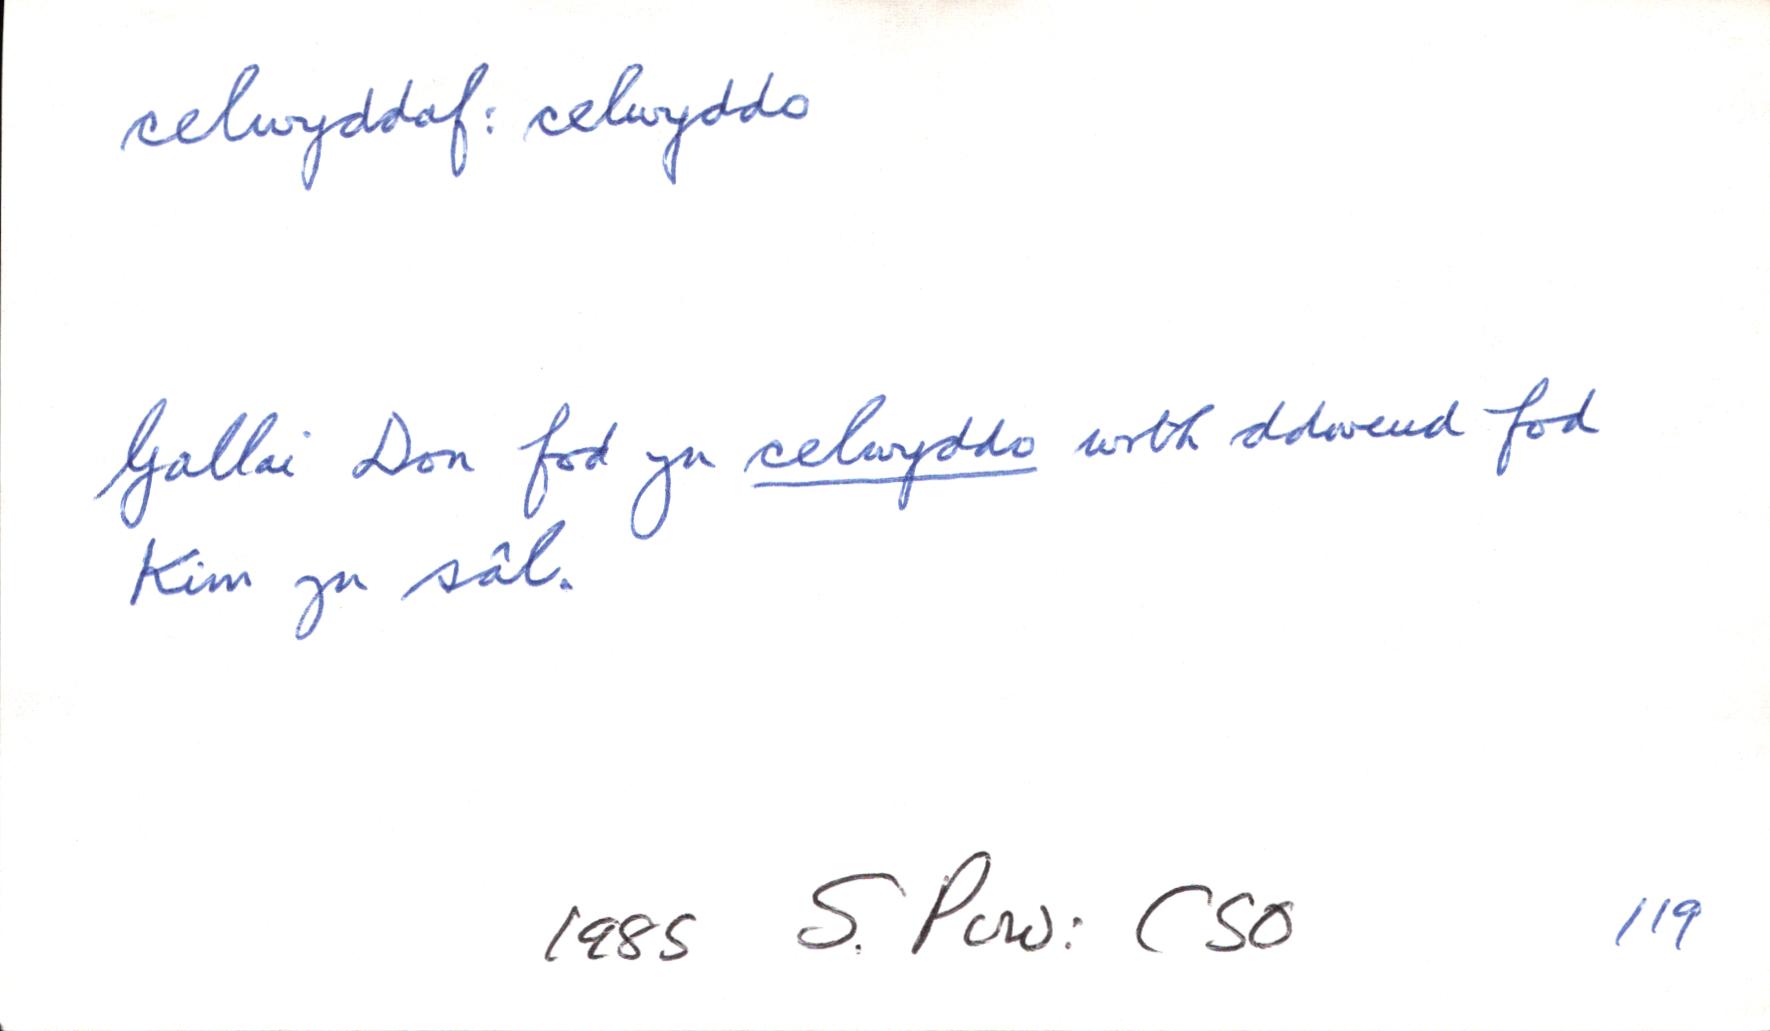 celwyddaf: celwyddo
Gallai Don fod yn celwyddo wrth ddweud fod
Kim yn sâl.
1985 S. Pow: CSO 119